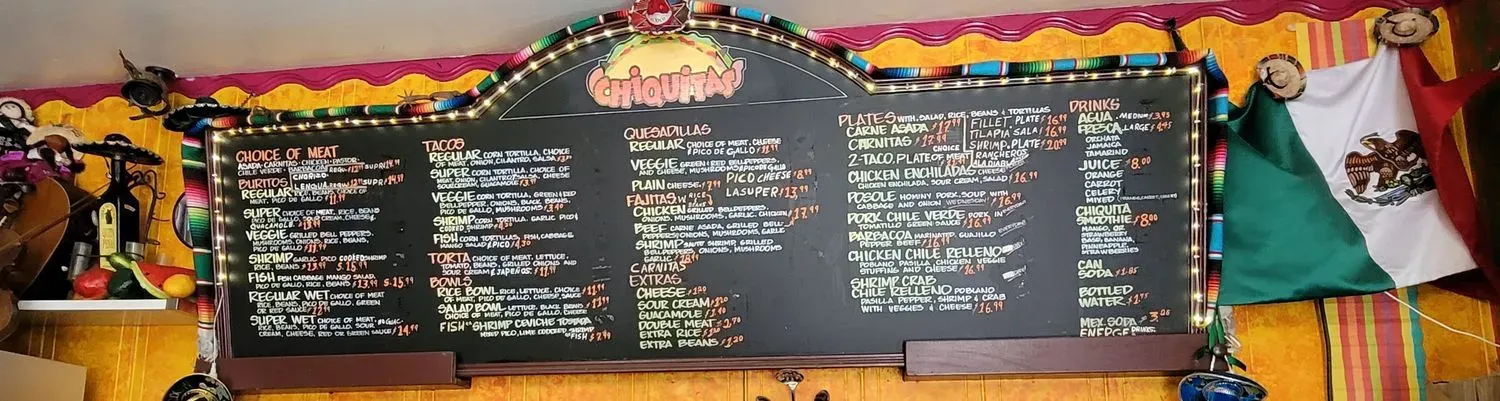 CHIQUITAS
CHOICE OF MEAT
ASADA·CARNITAS·CHICKEN·PASTOR·
CHILE VERDE·BARBACOA
CHORIZO
BURITOS
LENGUA
REGULAR RICE, BEANS, CHOICE OF
MEAT, PICO DE GALLO / 11.99
SUPER CHOICE OF MEAT, RICE, BEANS
PICO DE GALLO, SOUR CREAM, CHEESE &
GUACAMOLE
VEGGIE GRILLED BELL PEPPERS,
MUSHROOMS, ONIONS, RICE, BEANS,
PICO DE GALLO
SHRIMP GARLIC PICO COOKED SHRIMP
RICE, BEANS
FISH FISH CABBAGE MANGO SALAD,
RICE, BEANS, PICO DE GALLO
REGULAR WET CHOICE OF MEAT
RICE, BEANS, PICO DE GALLO, GREEN
OR RED SAUCE
SUPER WET CHOICE OF MEAT,
RICE, BEANS, PICO DE GALLO, SOUR
CREAM, CHEESE, RED OR GREEN SAUCE / 14.99
TACOS
REGULAR CORN TORTILLA, CHOICE
OF MEAT, ONION, CILANTRO, SALSA
SUPER CORN TORTILLA, CHOICE OF
MEAT, ONION, CILANTRO, SALSA, CHEESE
SOURCREAM, GUACAMOLE
VEGGIE CORN TORTILLA, GREEN & RED
BELLPEPPER, ONIONS, BLACK BEANS,
PICO DE GALLO, MUSHROOMS
SHRIMP CORN TORTILLA, GARLIC PICO &
COOKED SHRIMP
FISH CORN TORTILLAS, FISH, CABBAGE,
MANGO SALAD
TORTA CHOICE OF MEAT, LETTUCE,
TOMATO, BEANS, GRILLED ONIONS AND
SOUR CREAM & JALAPEÑOS
BOWLS
RICE BOWL RICE, LETTUCE, CHOICE
OF MEAT, PICO DE GALLO, CHEESE, SAUCE
SALAD BOWL LETTUCE, BLACK BEANS
CHOICE OF MEAT, PICO DE GALLO, CHEESE
FISH SHRIMP CEVICHE TOSTADA
MIXED PICO, LIME COOKED SHRIMP
FISH / 7.99
QUESADILLAS
REGULAR CHOICE OF MEAT, CHEESE
& PICO DE GALLO / 11.99
VEGGIE GREEN & RED BELLPEPPERS,
ONIONS, MUSHROOMS & PICO DE GALLO
PLAIN CHEESE / 7.99 PICO CHEESE / 8.99
LA SUPER / 13.99
FAJITAS
CHICKEN GRILLED BELLPEPPERS,
ONIONS, MUSHROOMS, GARLIC, CHICKEN / 17.99
BEEF CARNE ASADA, GRILLED BELL
PEPPERS, ONIONS, MUSHROOMS, GARLIC
SHRIMP SHRIMP, GRILLED
BELLPEPPERS, ONIONS, MUSHROOMS
GARLIC
CARNITAS
EXTRAS
CHEESE / 1.20
SOUR CREAM / 1.20
GUACAMOLE
DOUBLE MEAT
EXTRA RICE
EXTRA BEANS / 1.20
PLATES WITH SALAD, RICE, BEANS & TORTILLAS
CARNE ASADA / 17.99
CARNITAS / 17.99
FILLET PLATE / 16.99
TILAPIA SALA / 16.99
SHRIMP PLATE / 20.99
RANCHEROS
ALADIABLA
2-TACO, PLATE CHOICE OF MEAT
CHICKEN ENCHILADAS CHEESE,
CHICKEN ENCHILADA, SOUR CREAM, SALAD / 16.99
POSOLE HOMINY PORK SOUP WITH
CABBAGE AND ONION WEDNESDAY / 16.99
PORK CHILE VERDE PORK IN
TOMATILLO GREEN SAUCE / 16.99
BARBACOA MARINATED GUAJILLO
PEPPER BEEF / 16.99
CHICKEN CHILE RELLENO
POBLANO PASILLA, CHICKEN VEGGIE
STUFFING AND CHEESE / 16.99
SHRIMP CRAB
CHILE RELLENO POBLANO
PASILLA PEPPER, SHRIMP & CRAB
WITH VEGGIES & CHEESE / 16.99
DRINKS
AGUA MEDIUM / 3.95
FRESCA LARGE / 4.95
ORCHATA
JAMAICA
TAMARINO
JUICE $8.00
ORANGE
CARROT
CELERY
MIXED
CHIQUITA
SMOOTHIE $8.00
MANGO, OR
STRAWBERRY
BASE, BANANA,
PINNEAPPLE,
STRAWBERRIES
CAN
SODA
BOTTLED
WATER
MEX. SODA
ENERGE DRINKS